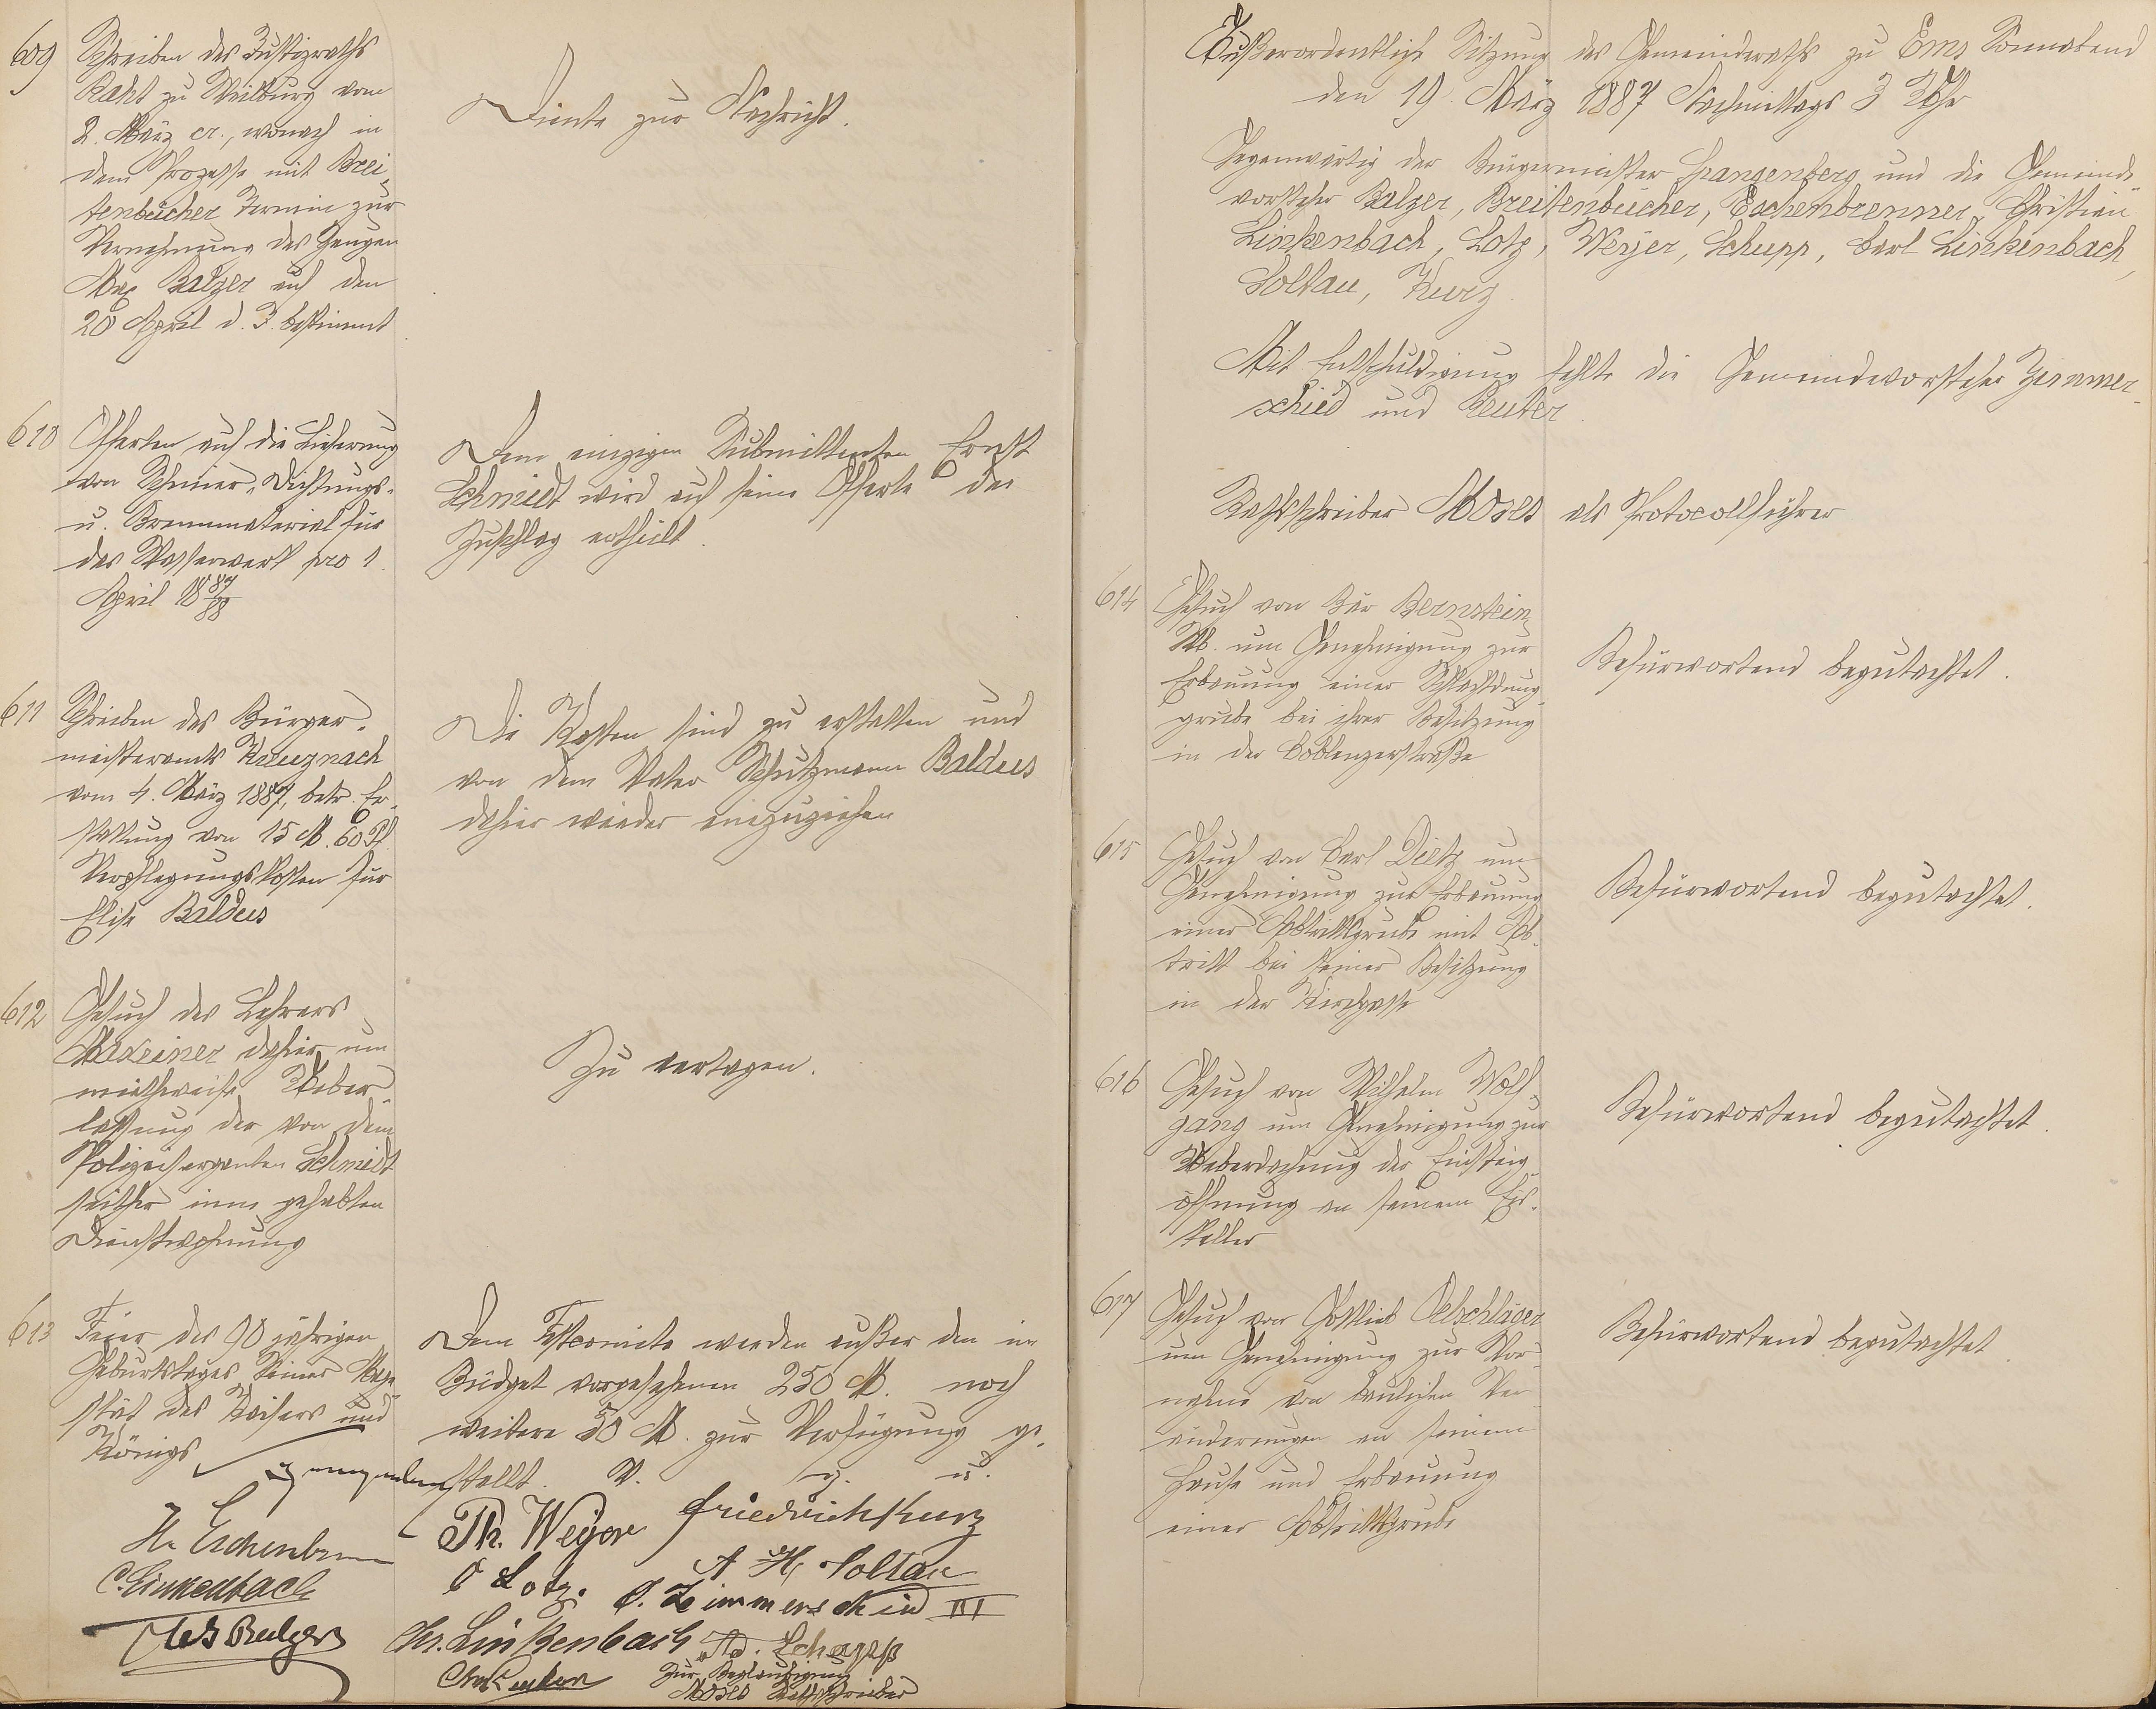 609
Schreiben des Justizraths
Raht zu Weilburg vom
2. März cr., wonach in
dem Prozesse mit Brei-
tenbücher Termin zur
Vernehmung des Zeugen
Max Balzer auf den
20 April d. J. bestimmt
Diente zur Nachricht.
610
Offerten auf die Lieferung
von Schmier-, Dichtungs-
u. Brennmaterial für
das Wasserwerk pro 1.
April 1887/88
Dem einzigen Submittenten Ernst
Schmidt wird auf seine Offerte der
Zuschlag ertheilt.
611
Schreiben des Bürger-
meisteramts Kreuznach
vom 4. März 1887, betr. Er-
stattung von 15 M. 60 Pf.
Verpflegungskosten für
Elise Baldus
Die Kosten sind zu erstatten und
von dem Vater Schutzmann Baldus
dahier wieder einzuziehen
612
Gesuch des Lehrers
Maxeiner dahier um
miethweise Ueber-
lassung der von dem
Polizeisergenten Schmidt
seither inne gehabten
Dienstwohnung
Zu vertagen.
613
Feier des 90 jährigen
Geburtstages Seiner Maje-
stät des Kaisers und
Königs
Dem Festcomite werden außer den im
Büdget vorgesehenen 250 M. noch
weitere 50 M. zur Verfügung ge-
stellt. V. g. u.
Th. Weyer Friedrich Kurz
H. Eschenbrenner
O Lotz. A H. Soltau
C. Linkenbach
C. Zimmerschied III
Balzer
Chr. Linkenbach Ad. Schupp
Zur Beglaubigung
Moses Rathschreiber
Außerordentliche Sitzung des Gemeinderaths zu Ems Sonnabend
den 19. März 1887 Nachmittags 3 Uhr
Gegenwärtig der Bürgermeister Spangenberg und die Gemeinde-
vorsteher Balzer, Breitenbücher, Eschenbrenner, Christian
Linkenbach, Lotz, Weyer, Schupp, Carl Linkenbach,
Soltau, Kurz.
Mit Entschuldigung fehlte die Gemeindevorsteher Zimmer-
schied und Reuter.
Rathschreiber Moses als Protocollführer
614
Gesuch von Bär Bernstein
Wb. um Genehmigung zur
Erbauung einer Schlachtdung-
grube bei ihrer Besitzung
in der Coblenzerstraße
Befürwortend begutachtet.
615
Gesuch von Carl Dietz um
Genehmigung zur Erbauung
einer Abtrittsgrube mit Ab-
tritt bei seiner Besitzung
in der Kirchgasse
Befürwortend begutachtet.
616
Gesuch von Wilhelm Wolf-
gang um Genehmigung zur
Ueberdachung der Einsteig-
öffnung an seinem Eis-
keller
Befürwortend begutachtet.
617
Gesuch von Gottlieb Oelschläger
um Genehmigung zur Vor-
nahme von baulichen Ver-
änderungen an seinem
Hause und Erbauung
einer Abtrittsgrube
Befürwortend begutachtet.